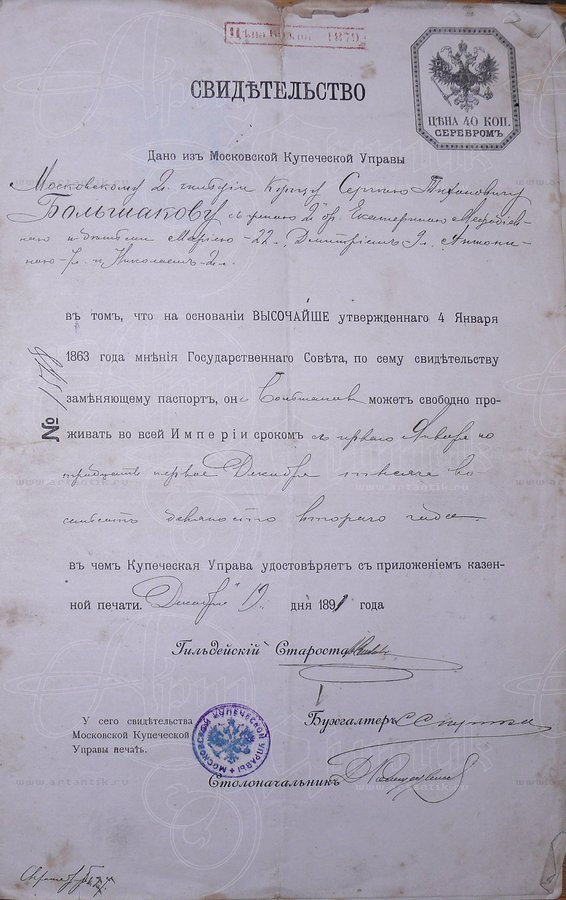 СВИДѢТЕЛЬСТВО
ЦѢНА 40 КОП.
СЕРЕБРОМЪ.
Дано изъ Московской Купеческой Управы
Московскому 2й гильдіи Купцу Сергѣю Тихановичу
Большакову съ женою 2 бр. Екатериною
и дѣтьми Маріею - 22 л., Дмитріемъ 9 л.,
и Николаемъ - 2 л.
въ томъ, что на основаніи ВЫСОЧАЙШЕ утвержденнаго 4 Января
1863 года мнѣнія Государственнаго Совѣта, по сему свидѣтельству
замѣняющему паспортъ, онъ Большаковъ можетъ свободно про-
живать во всей Имперіи срокомъ съ перваго Января по
тридцать первое Декабря тысяча во-
семьсотъ девяносто втораго года
въ чемъ Купеческая Управа удостовѣряетъ съ приложеніемъ казен-
ной печати. Декабря 19 дня 1891 года
№
Гильдейскій Староста
Бухгалтеръ
У сего свидѣтельства
Московской Купеческой
Управы печать.
МОСКОВСКОЙ КУПЕЧЕСКОЙ УПРАВЫ
Столоначальникъ
www.artantik.ru